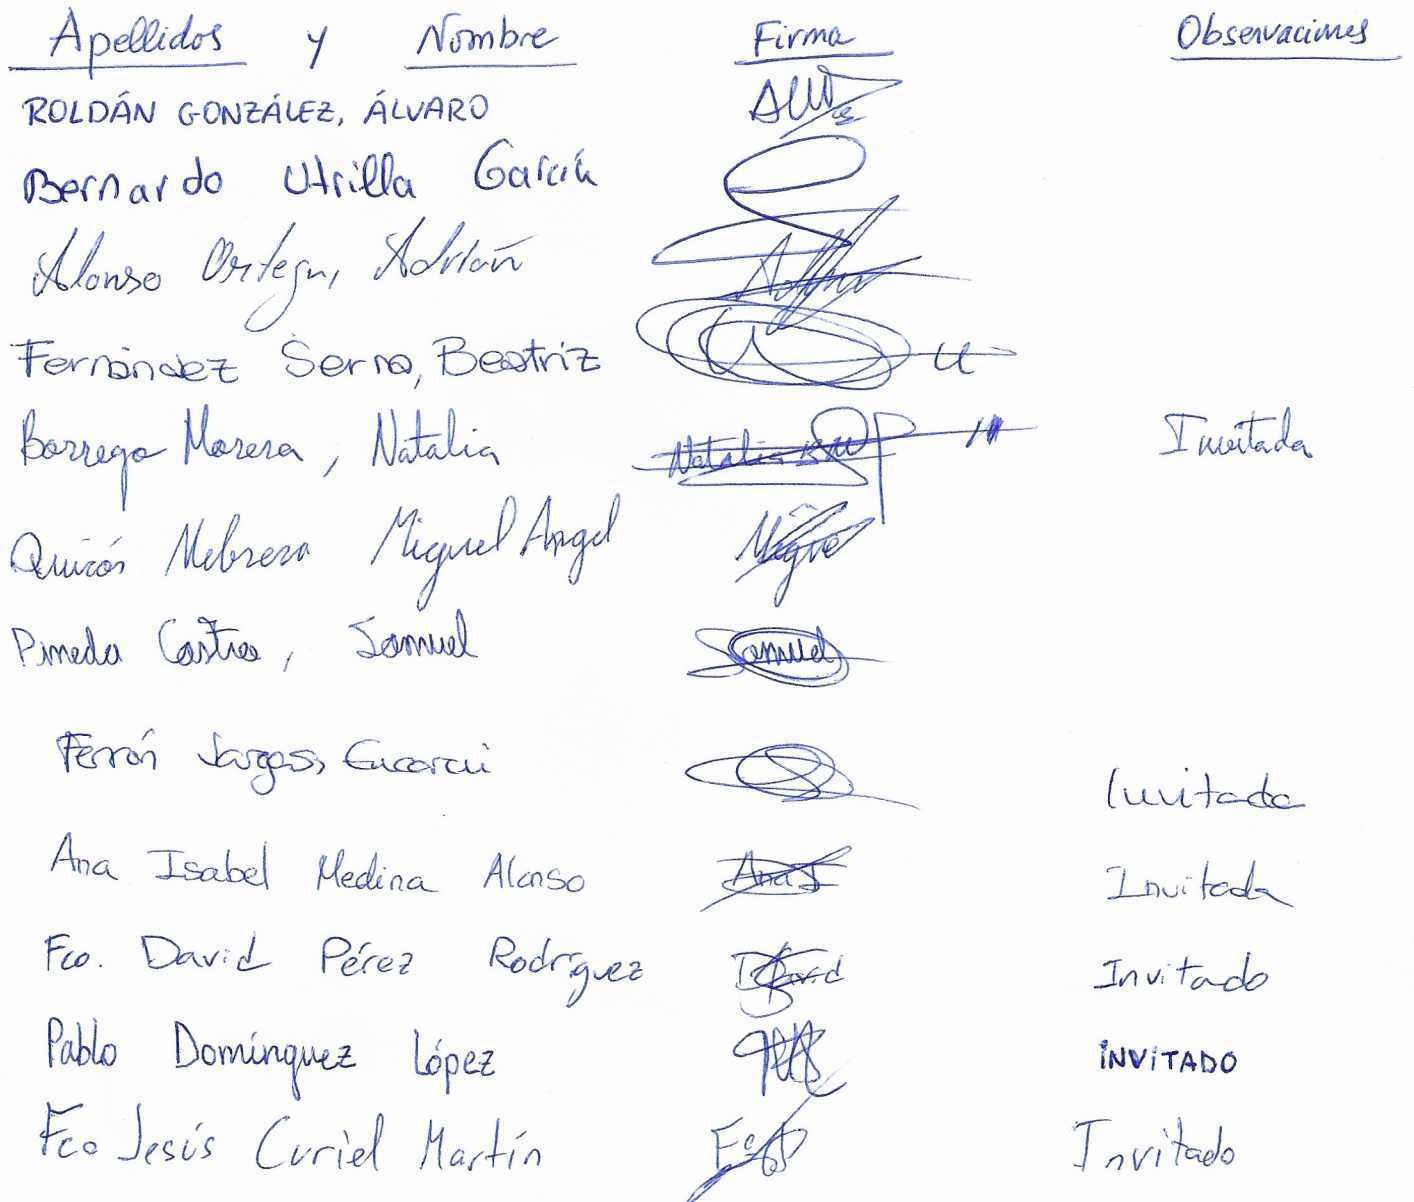 Apellidos y Nombre Firma Observaciones
ROLDÁN GONZÁLEZ, ÁLVARO
Bernardo Utrilla García
Alonso Ortega, Adrián
Fernández Serna, Beatriz
Borrego Morera, Natalia Natalia Invitada
Quirós Miguel Angel
Pineda Castro, Samuel Samuel
Ferrón Vargas, Invitada
Ana Isabel Medina Alonso Ana I Invitada
Fco. David Pérez Rodríguez David Invitado
Pablo Domínguez López INVITADO
Fco Jesús Curiel Martín Invitado